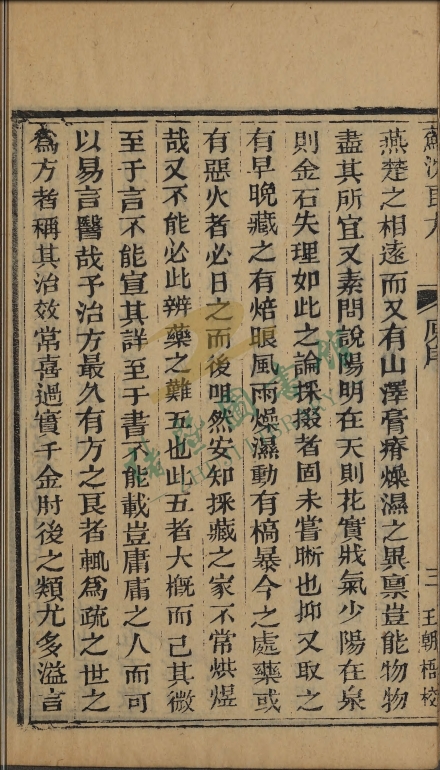 蘇沈良方 原序 三 王朝梧校
燕楚之相遠而又有山澤膏瘠燥濕之異禀豈能物物
盡其所宜又素問說陽明在天則花實戕氣少陽在泉
則金石失理如此之論採掇者固未嘗晰也抑又取之
有早晚藏之有焙晾風雨燥濕動有槁暴今之處藥或
有惡火者必日之而後咀然安知採藏之家不常烘煜
哉又不能必此辨藥之難五也此五者大概而已其微
至于言不能宣其詳至于書不能載豈庸庸之人而可
以易言醫哉予治方最久有方之良者輒為疏之世之
為方者稱其治效常喜過實千金肘後之類尤多溢言